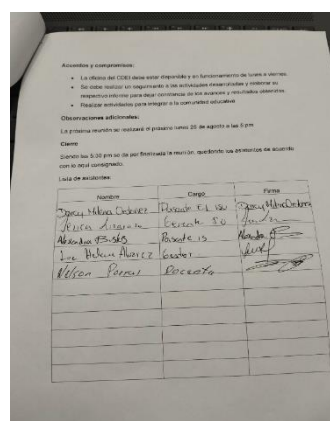 Acuerdos y compromisos:
La oficina del CDEI debe estar disponible y en funcionamiento de lunes a viernes.
Se debe realizar un seguimiento a las actividades desarrolladas y elaborar su
respectivo informe para dejar constancia de los avances y resultados obtenidos.
Realizar actividades para integrar a la comunidad educativa
Observaciones adicionales:
La próxima reunión se realizará el próximo lunes 25 de agosto a las 5 pm
Cierre
Siendo las 5:30 pm se da por finalizada la reunión, quedando los asistentes de acuerdo
con lo aquí consignado.
Lista de asistentes:
Nombre Cargo Firma
Darcy Milena Ordoñez Docente
Alexandra
Helena Alvarez
Nelson Docente